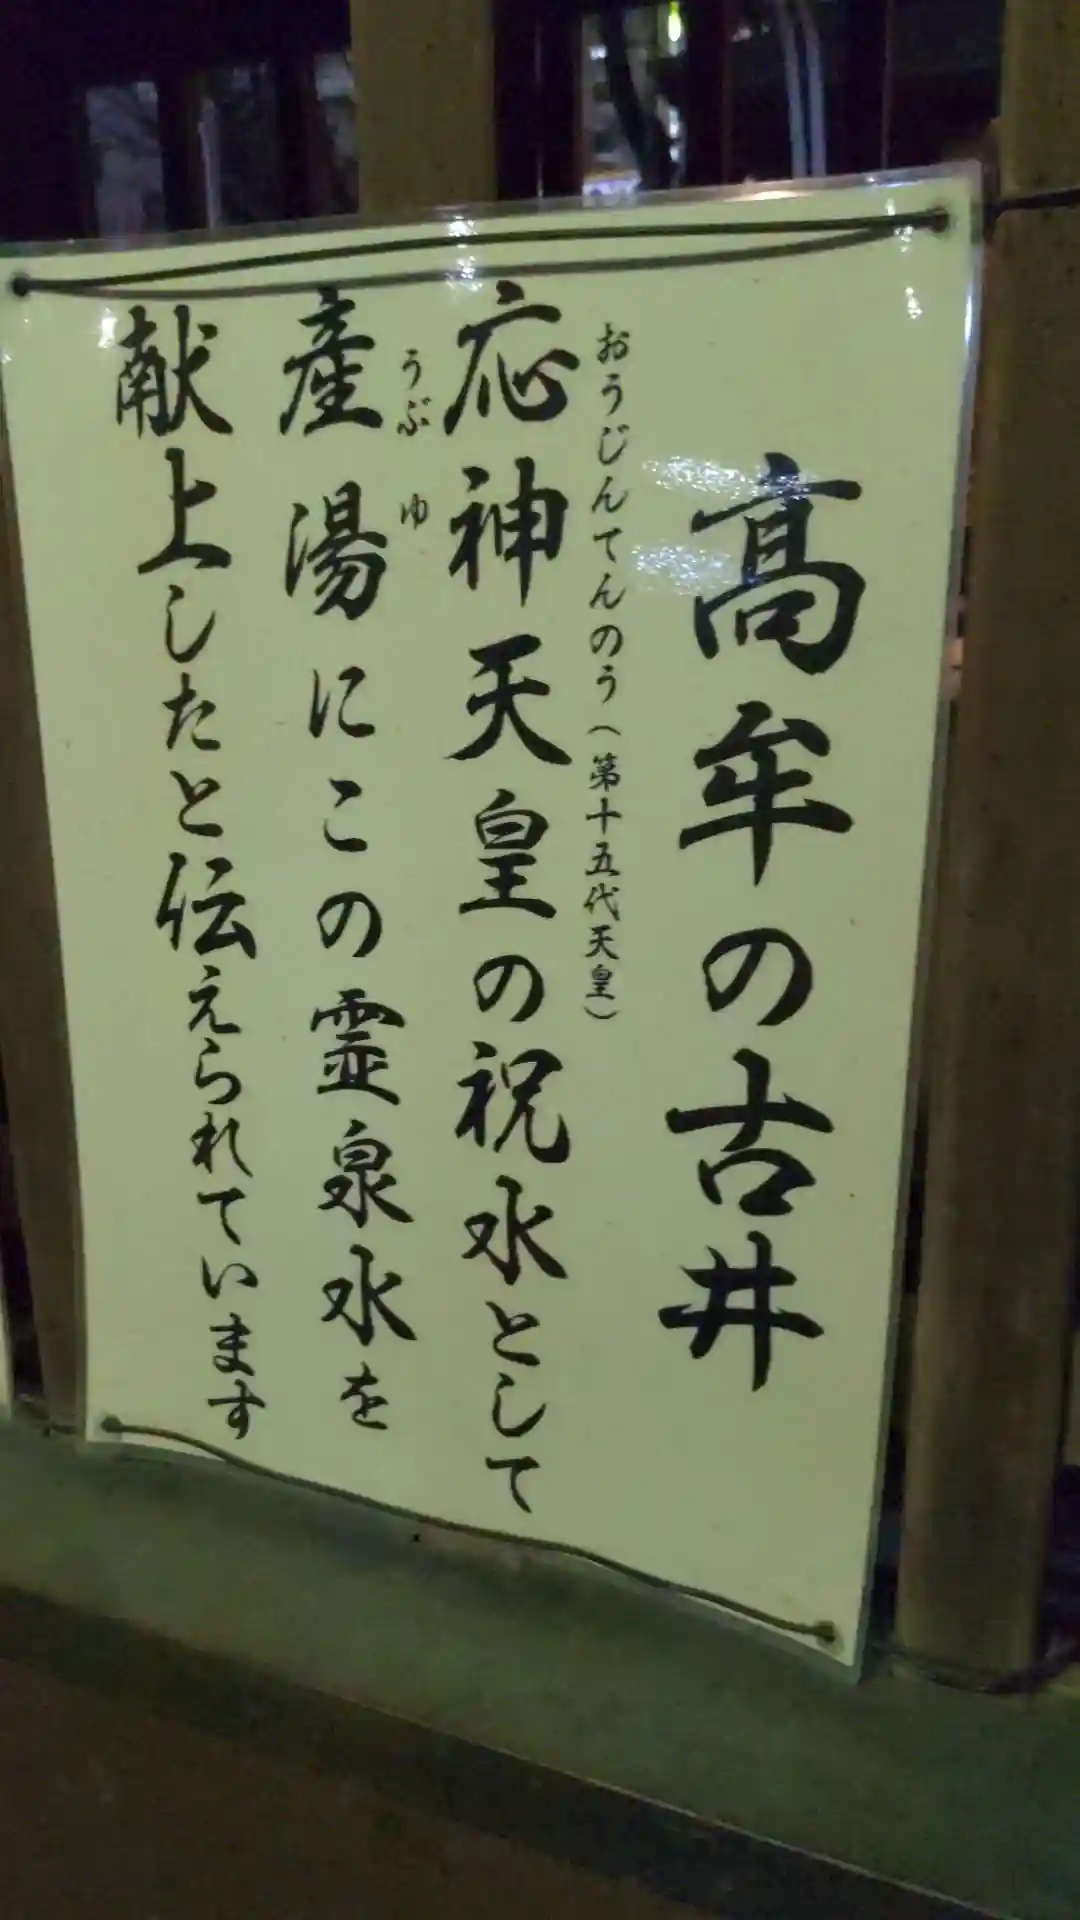 高牟の古井
おうじんてんのう（第十五代天皇）
応神天皇の祝水として
うぶ ゆ
産湯にこの霊泉水を
献上したと伝えられています